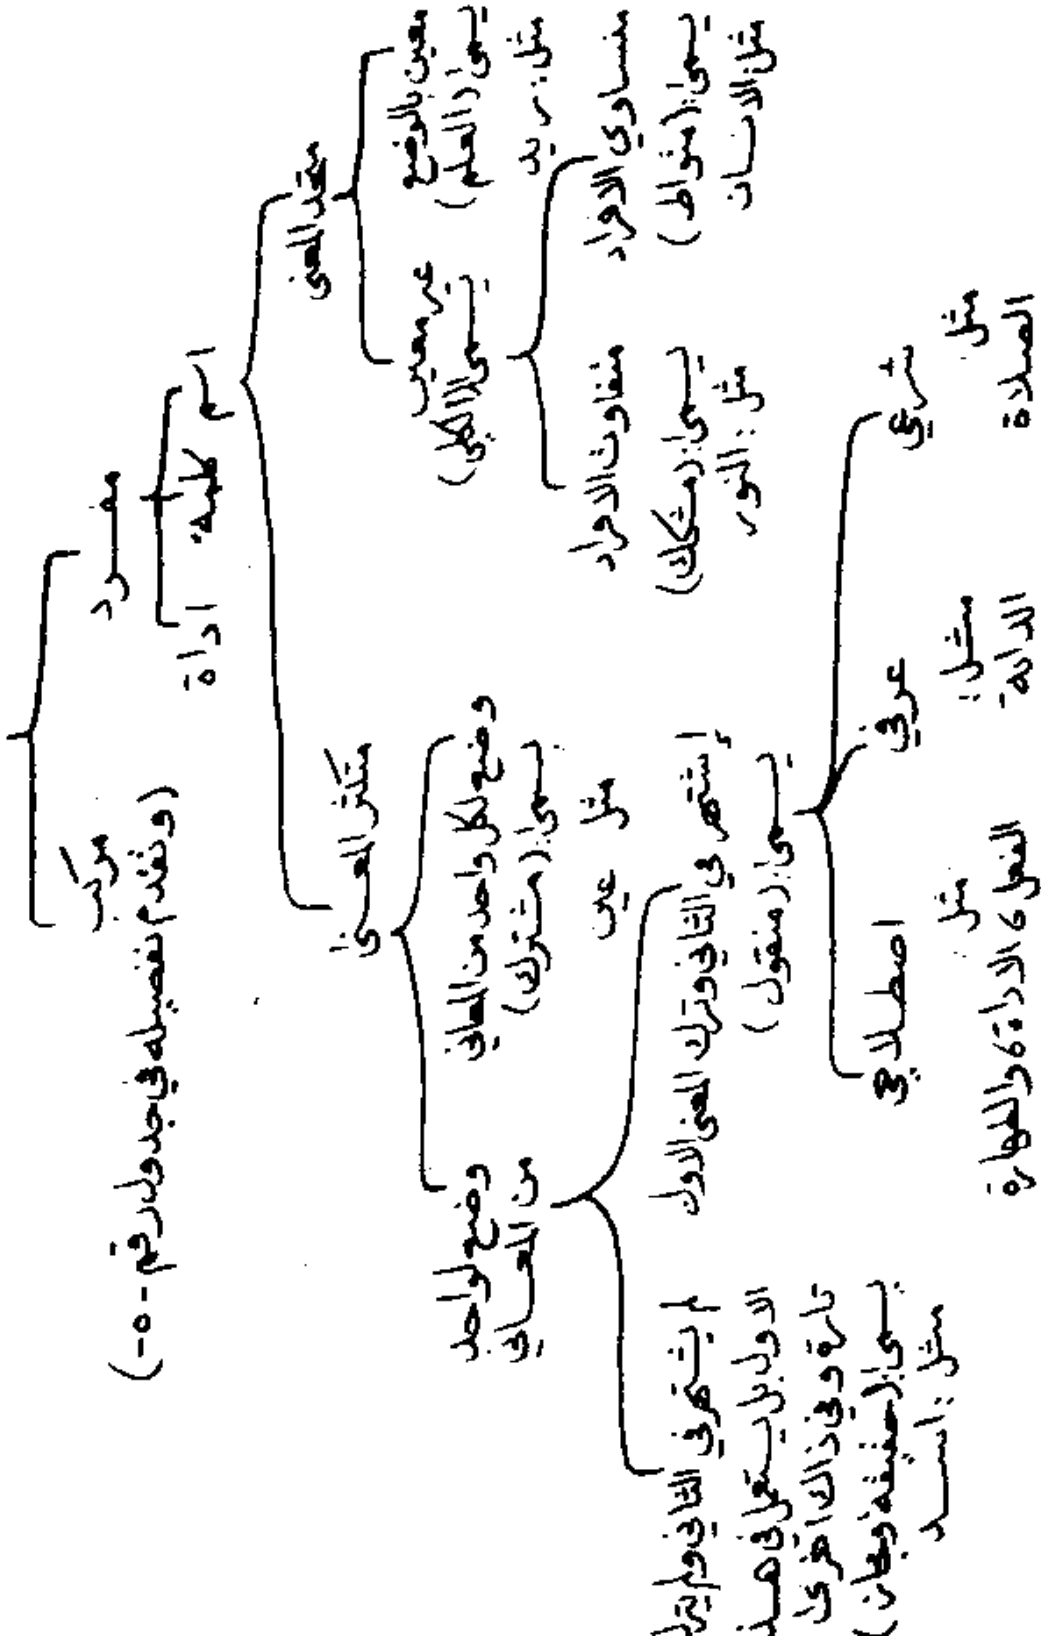 مفرد
مركب
(وتقدم تفصيله في جدول رقم -٥-)
اسم
كلمة
اداة
متحد المعنى
متكثر المعنى
معين بالوضع
يسمى (العلم)
مثل: زيد
غير معين
يسمى (الكلي)
متساوي الافراد
يسمى: (متواط)
مثل: الانسان
متفاوت الافراد
يسمى: (مشكك)
مثل: النور
وضع لكل واحد من المعاني
يسمى: (مشترك)
مثل عين
وضع لواحد
من المعاني
إشتهر في الثاني وترك المعنى الاول
يسمى: (منقول)
شرعي
مثل
الصلاة
عرفي
مثل:
الدابة
اصطلاحي
مثل
الفعل، الاداة، والطهارة
لم يشتهر في الثاني ولم يترك
الاول بل يستعمل في هذا
تارة وفي ذاك اخرى
يسمى: (حقيقة ومجاز)
مثل: اسد